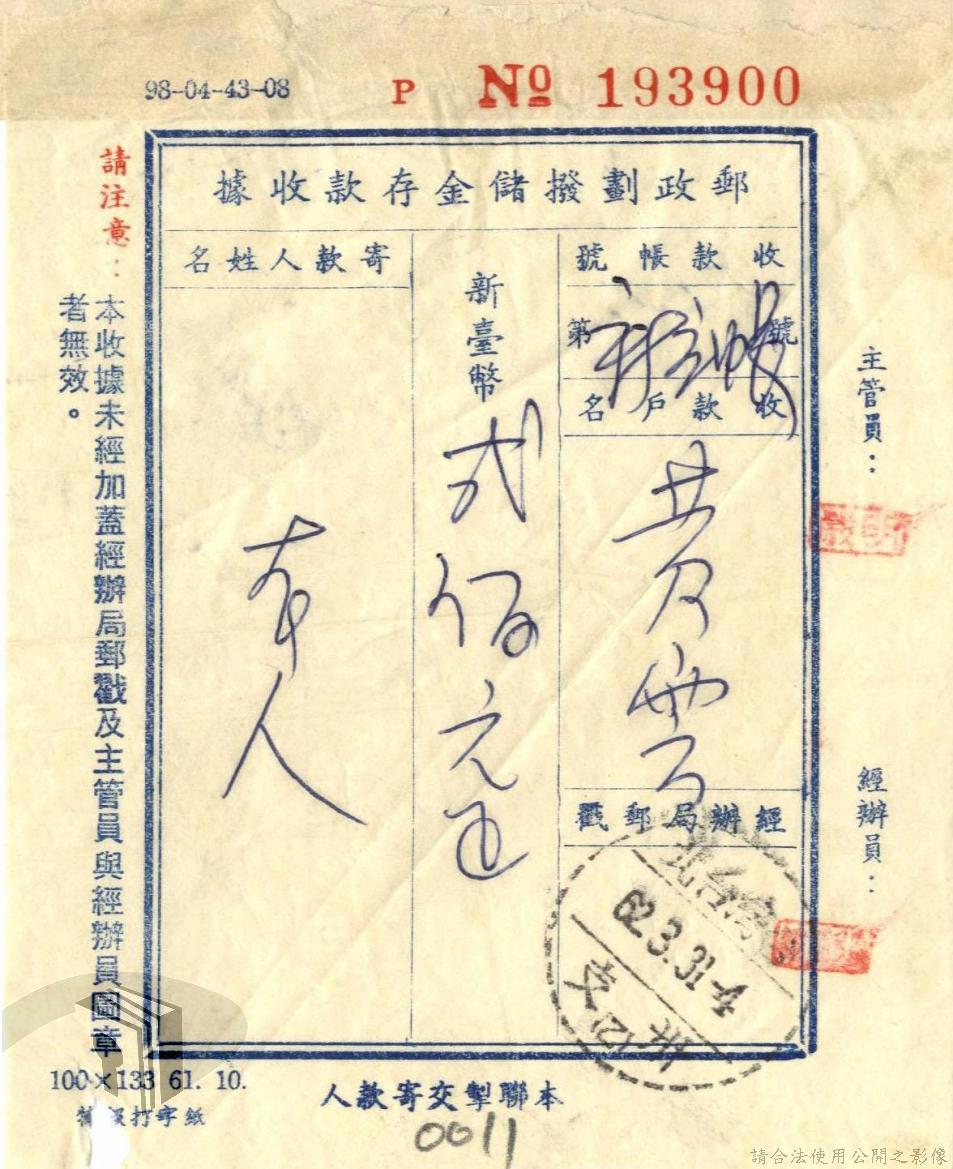 98-04-43-08
P № 193900
郵政劃撥儲金存款收據
收款帳號
第 號
收款戶名
黃雲
新臺幣
弍佰元正
寄款人姓名
本人
經辦局郵戳
62.3.31-4
主管員：
經辦員：
請注意：
本收據未經加蓋經辦局郵戳及主管員與經辦員圖章
者無效。
100×133 61. 10.
打字紙
本聯掣交寄款人
0011
請合法使用公開之影像